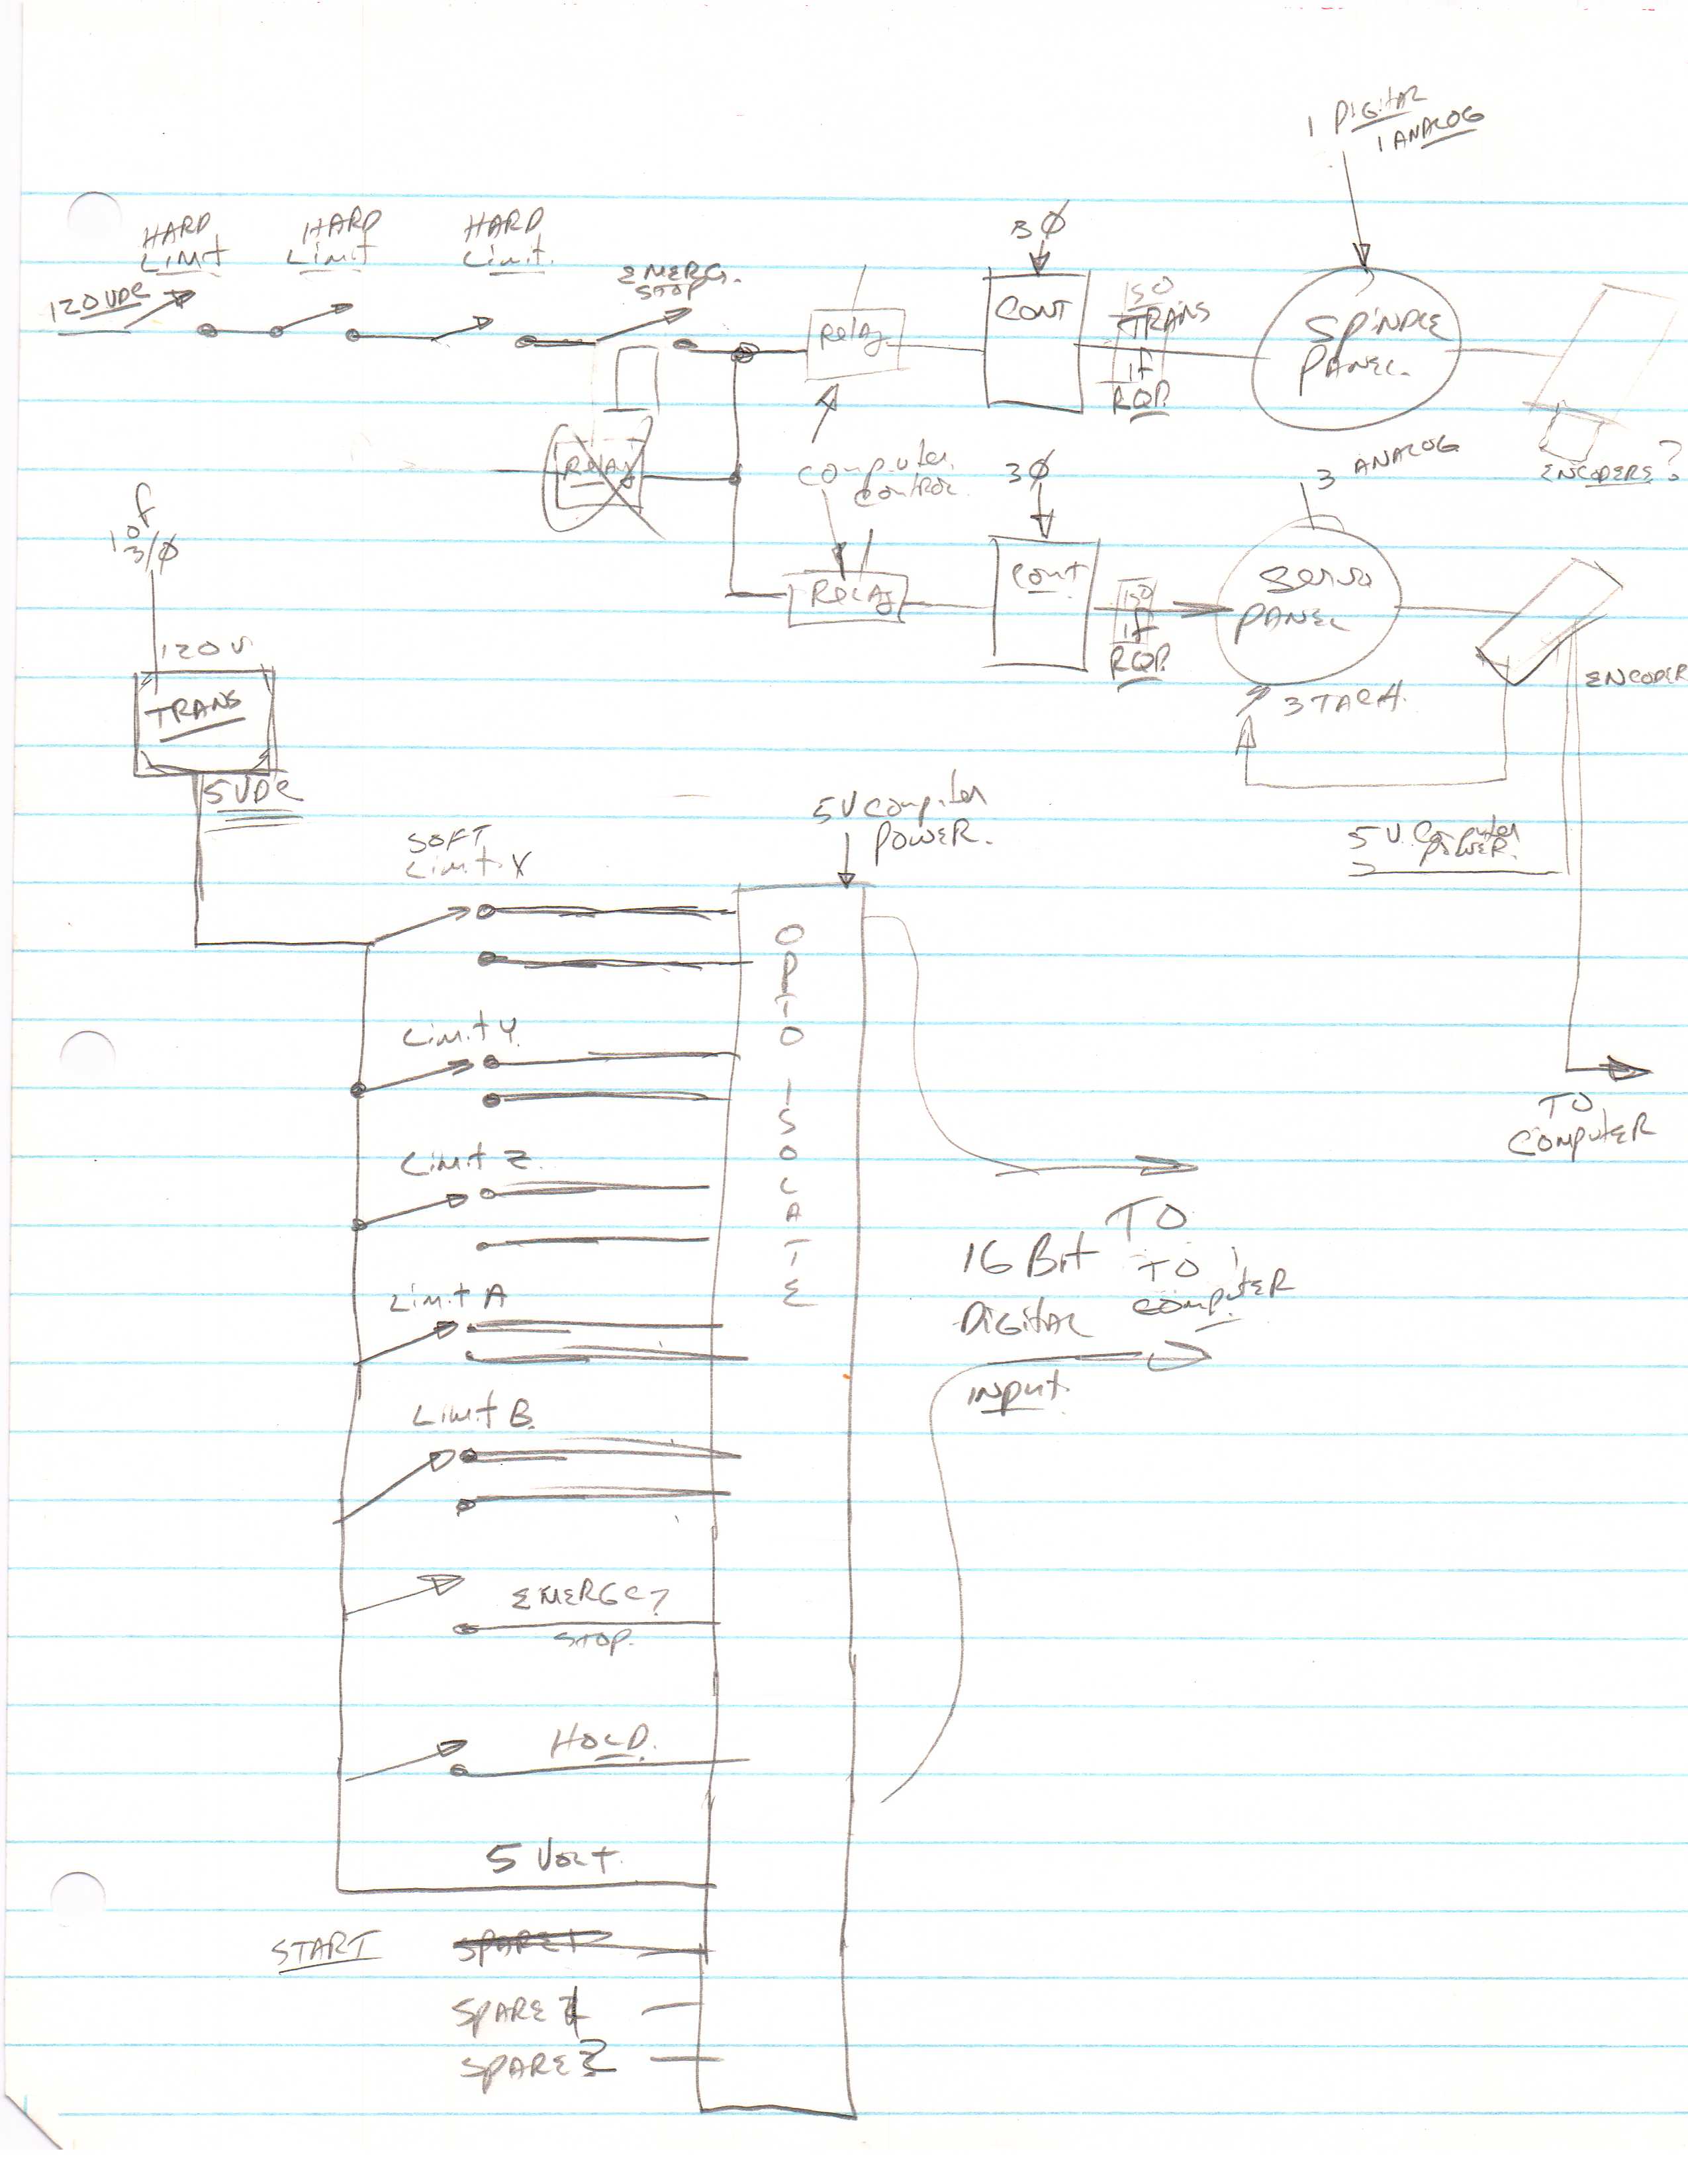 1 DIGITAL
1 ANALOG
HARD
LIMIT
HARD
LIMIT
HARD
LIMIT.
3Ø
120VDC
EMERG.
STOP
RELAY
CONT
ISO
TRANS
IF
RQD.
SPINDLE
PANEL.
ENCODERS?
RELAY
COMPUTER
CONTROL.
3Ø
3 ANALOG
1 OF
3/Ø
RELAY
CONT
ISO
IF
RQD.
SERVO
PANEL
ENCODER
3 TACH.
120 V.
TRANS
5VDC
5V COMPUTER
POWER.
5V. COMPUTER
POWER.
SOFT
LIMIT X
OPTO ISOLATE
LIMIT Y.
LIMIT Z.
LIMIT A
LIMIT B.
TO
COMPUTER
16 BIT
DIGITAL
INPUT.
TO
TO
COMPUTER
STOP.
HOLD.
5 VOLT.
START
SPARE 1
SPARE 1
SPARE 2